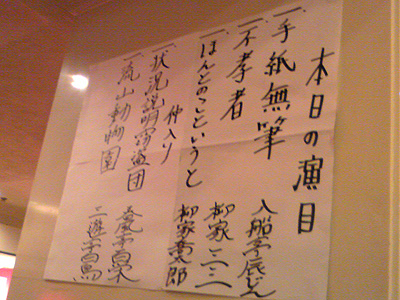 本日の演目
一、手紙無筆 入船亭辰じん
一、不孝者 柳家三三
一、ほんとのこというと 柳家喬太郎
仲入り
一、状況説明窃盗団 春風亭百栄
一、流山動物園 三遊亭白鳥